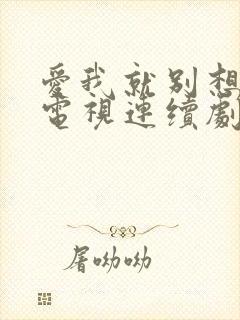 愛我就別想
電視連續劇
屠呦呦